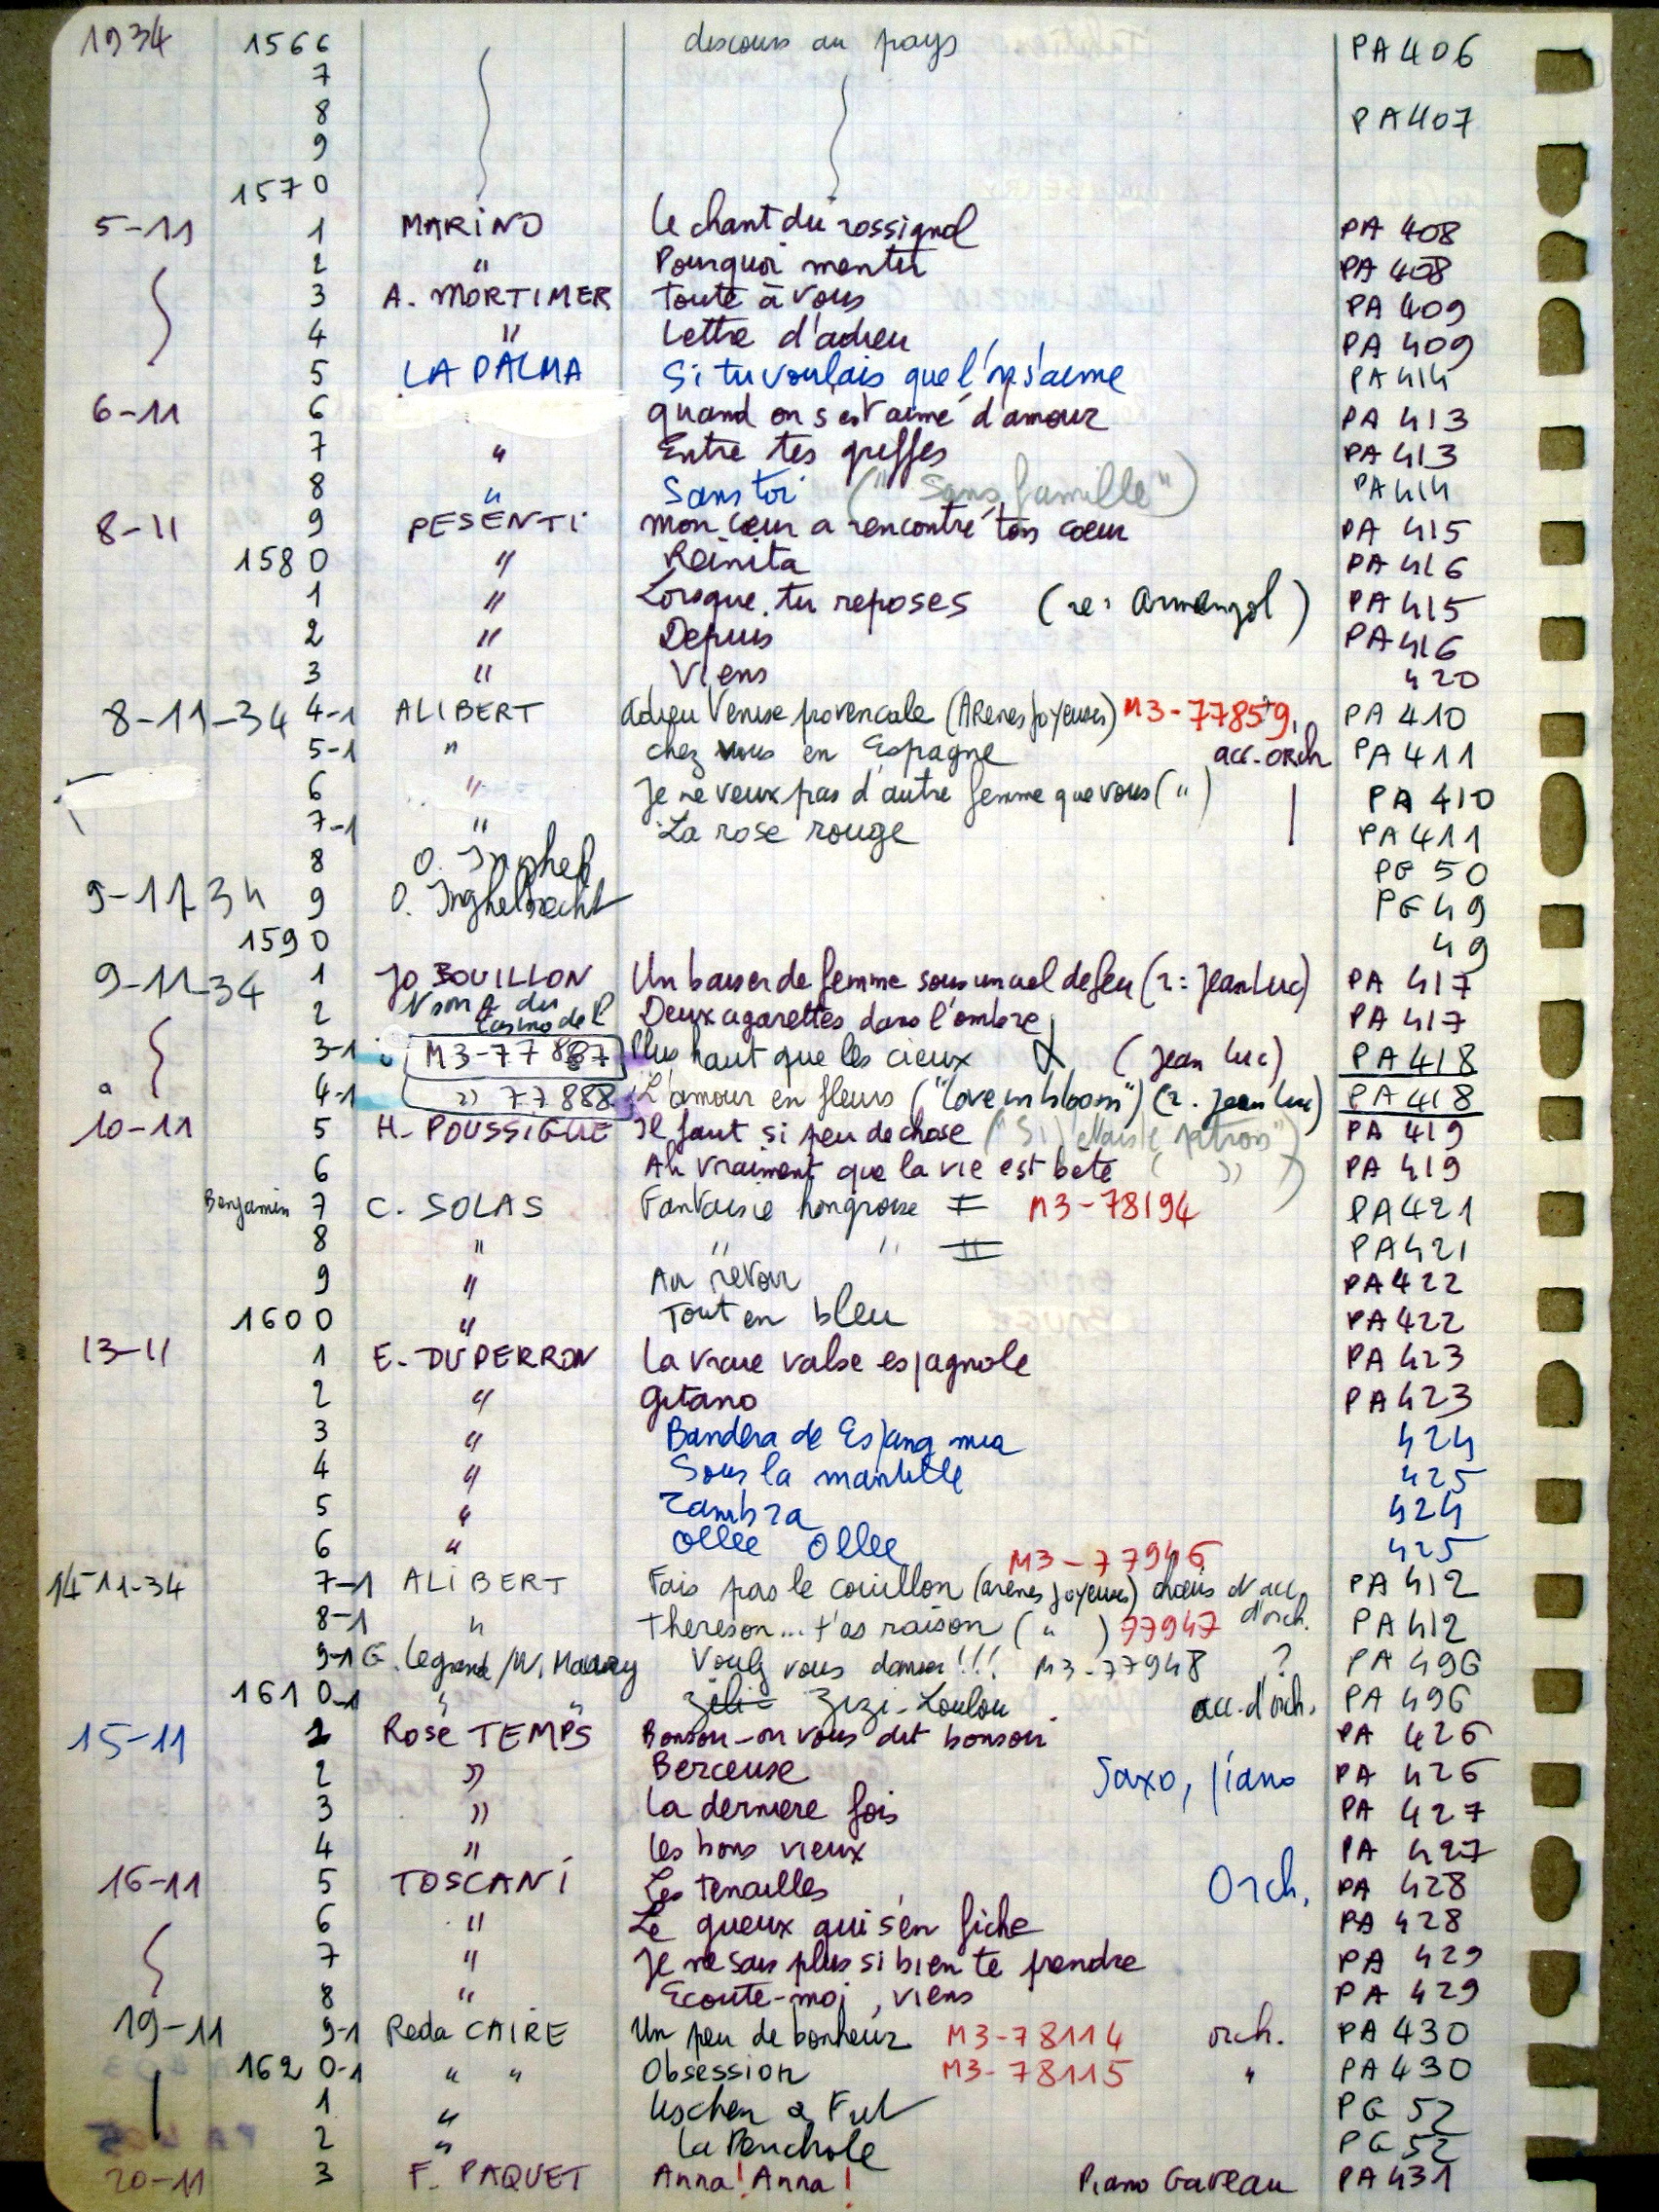 1934 1566 discours au pays PA 406
7
8 PA 407
9
1570
5-11 1 MARINO Le chant du rossignol PA 408
2 " Pourquoi mentir PA 408
3 A. MORTIMER Toute à vous PA 409
4 " Lettre d'adieu PA 409
5 LA PALMA Si tu voulais que l'on s'aime PA 414
6-11 6 quand on s'est aimé d'amour PA 413
7 " Entre tes griffes PA 413
8 " Sans toi ("Sans famille") PA 414
8-11 9 PESENTI mon cœur a rencontré ton cœur PA 415
1580 " Reinita PA 416
1 " Lorsque tu reposes (re: Armengol) PA 415
2 " Depuis PA 416
3 " Viens 420
8-11-34 4-1 ALIBERT Adieu Venise provencale (Arenes Joyeuses) M3-77859 PA 410
5-1 " chez nous en Espagne acc. orch PA 411
6 " Je ne veux pas d'autre femme que vous (") PA 410
7-1 " La rose rouge PA 411
8 O. Inghelb PG 50
9-11 34 9 O. Inghelbrecht PG 49
1590 49
9-11-34 1 JO BOUILLON Un baiser de femme sous un ciel de feu (r: Jean Luc) PA 417
2 du Casino de P Deux cigarettes dans l'ombre PA 417
3-1 M3-77887 Plus haut que les cieux (Jean Luc) PA 418
4-1 " 77888 L'amour en fleurs ("Love in bloom") (r. Jean Luc) PA 418
10-11 5 H. POUSSIGUE Il faut si peu de chose ("Si j'étais le patron") PA 419
6 Ah vraiment que la vie est bête ( " ) PA 419
Benjamin 7 C. SOLAS Fantaisie hongroise I M3-78194 PA 421
8 " " " II PA 421
9 " Au revoir PA 422
1600 " Tout en bleu PA 422
13-11 1 E. DUPERRON La vraie valse espagnole PA 423
2 " Gitano PA 423
3 " Bandera de Espana mia 424
4 " Sous la mantille 425
5 " Zambra 424
6 " Ollee Ollee 425
M3-77946
14-11-34 7-1 ALIBERT Fais pas le couillon (arènes joyeuses) chœurs et acc. d'orch. PA 412
8-1 " Thereson... t'as raison ( " ) 77947 PA 412
9-1 G. Legrand / W. Voulez vous danser!!! M3-77948 ? PA 496
1610-1 " " Zizi-Loulou acc. d'orch. PA 496
15-11 1 Rose TEMPS Bonsoir-on vous dit bonsoir PA 426
2 " Berceuse Saxo, piano PA 426
3 " La derniere fois PA 427
4 " Les bons vieux PA 427
16-11 5 TOSCANI Les tenailles Orch. PA 428
6 " Le gueux qui s'en fiche PA 428
7 " Je ne sais plus si bien te prendre PA 429
8 " Ecoute-moi, viens PA 429
19-11 9-1 Reda CAIRE Un peu de bonheur M3-78114 orch. PA 430
1620-1 " " Obsession M3-78115 " PA 430
1 " PG 52
2 " PG 52
20-11 3 F. PAQUET Anna! Anna! Piano Gaveau PA 431